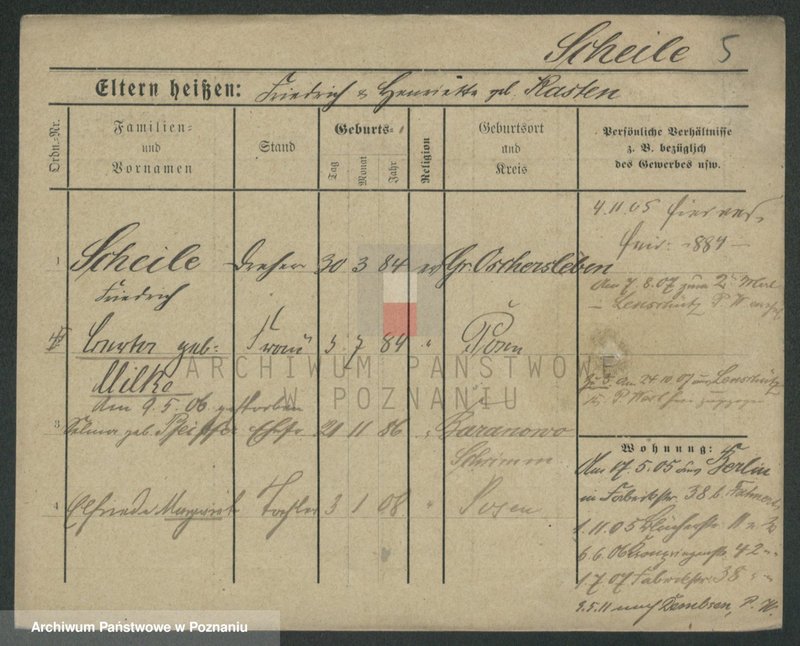 Scheile 5
Eltern heißen: Friedrich & Henriette geb. Kasten
Ordn.-Nr.
Familien- und Vornamen
Stand
Geburts-
Tag Monat Jahr
Religion
Geburtsort und Kreis
Persönliche Verhältnisse
z. B. bezüglich
des Gewerbes usw.
4.11.05
1 Scheile Dreher 30 3 84 ev Gr. Oschersleben
Friedrich
Am 7.8.07 zum 2. Mal
Berta geb. Frau 5 7 84 " Posen
Milke
Am 9.5.06 gestorben
Am 24.10.07 aus
3 Selma geb. Pfeiffer Ehefr 21 11 86 " Baranowo
Schrimm
4 Elfriede Margaret Tochter 3 1 08 " Posen
Wohnung:
Am 17.5.05 aus Berlin
in Fabrikstr. 38 b.
1.11.05 11
6.6.06 Kronprinzenstr. 42
1.7.07 Fabrikstr. 38
9.5.11 nach Dembsen, P. W.
ARCHIWUM PAŃSTWOWE
W POZNANIU
Archiwum Państwowe w Poznaniu